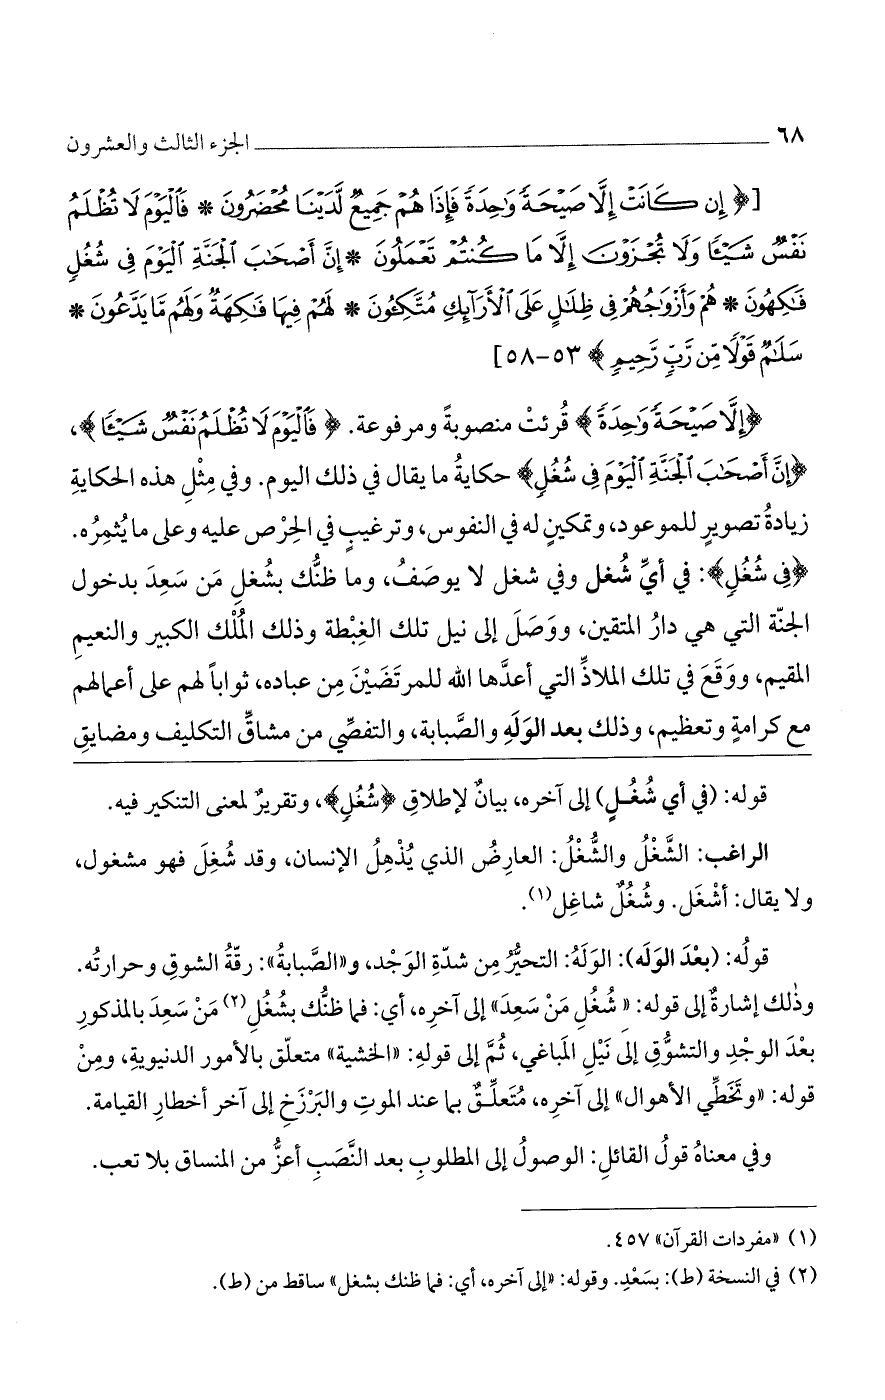 ٦٨ الجزء الثالث والعشرون
[﴿ إِن كَانَتْ إِلَّا صَيْحَةً وَٰحِدَةً فَإِذَا هُمْ جَمِيعٌ لَّدَيْنَا مُحْضَرُونَ * فَٱلْيَوْمَ لَا تُظْلَمُ
نَفْسٌ شَيْـًٔا وَلَا تُجْزَوْنَ إِلَّا مَا كُنتُمْ تَعْمَلُونَ * إِنَّ أَصْحَٰبَ ٱلْجَنَّةِ ٱلْيَوْمَ فِى شُغُلٍ
فَٰكِهُونَ * هُمْ وَأَزْوَٰجُهُمْ فِى ظِلَٰلٍ عَلَى ٱلْأَرَآئِكِ مُتَّكِـُٔونَ * لَهُمْ فِيهَا فَٰكِهَةٌ وَلَهُم مَّا يَدَّعُونَ *
سَلَٰمٌ قَوْلًا مِّن رَّبٍّ رَّحِيمٍ ﴾ ٥٣-٥٨]
﴿إِلَّا صَيْحَةً وَٰحِدَةً﴾ قُرئتْ منصوبةً ومرفوعة. ﴿ فَٱلْيَوْمَ لَا تُظْلَمُ نَفْسٌ شَيْـًٔا ﴾،
﴿إِنَّ أَصْحَٰبَ ٱلْجَنَّةِ ٱلْيَوْمَ فِى شُغُلٍ﴾ حكايةُ ما يقال في ذلك اليوم. وفي مِثْلِ هذه الحكايةِ
زيادةُ تصويرٍ للموعود، وتمكينٍ له في النفوس، وترغيبٍ في الحِرْص عليه وعلى ما يُثمِرُه.
﴿فِى شُغُلٍ﴾: في أيِّ شُغل وفي شغل لا يوصَفُ، وما ظنُّك بشُغلِ مَن سَعِدَ بدخول
الجنّة التي هي دارُ المتقين، ووَصَلَ إلى نيل تلك الغِبْطة وذلك المُلْك الكبير والنعيمِ
المقيم، ووَقَعَ في تلك الملاذِّ التي أعدَّها الله للمرتَضَيْنَ مِن عباده، ثواباً لهم على أعمالهم
مع كرامةٍ وتعظيم، وذلك بعد الوَلَهِ والصَّبابة، والتفصِّي من مشاقِّ التكليف ومضايقِ
قوله: (في أي شُغُـلٍ) إلى آخره، بيانٌ لإطلاقِ ﴿شُغُلٍ﴾، وتقريرٌ لمعنى التنكير فيه.
الراغب: الشَّغْلُ والشُّغْلُ: العارِضُ الذي يُذْهِلُ الإنسان، وقد شُغِلَ فهو مشغول،
ولا يقال: أشْغَل. وشُغُلٌ شاغِل(١).
قولُه: (بعْدَ الوَلَه): الوَلَهُ: التحيُّرُ مِن شدّةِ الوَجْد، و«الصَّبابةُ»: رقّةُ الشوقِ وحرارتُه.
وذلك إشارةٌ إلى قوله: «شُغُلِ مَنْ سَعِدَ» إلى آخرِه، أي: فما ظنُّك بشُغُلِ(٢) مَنْ سَعِدَ بالمذكورِ
بعْدَ الوجْدِ والتشوُّقِ إلى نَيْلِ المَباغي، ثُمَّ إلى قولهِ: «الخشية» متعلّق بالأمور الدنيويةِ، ومِنْ
قوله: «وتَخَطِّي الأهوال» إلى آخرِه، مُتَعلِّـقٌ بما عند الموتِ والبَرْزَخِ إلى آخر أخطارِ القيامة.
وفي معناهُ قولُ القائلِ: الوصولُ إلى المطلوبِ بعد النَّصَبِ أعزُّ من المنساق بلا تعب.
(١) «مفردات القرآن» ٤٥٧.
(٢) في النسخة (ط): بسَعْدِ. وقوله: «إلى آخره، أي: فما ظنك بشغل» ساقط من (ط).